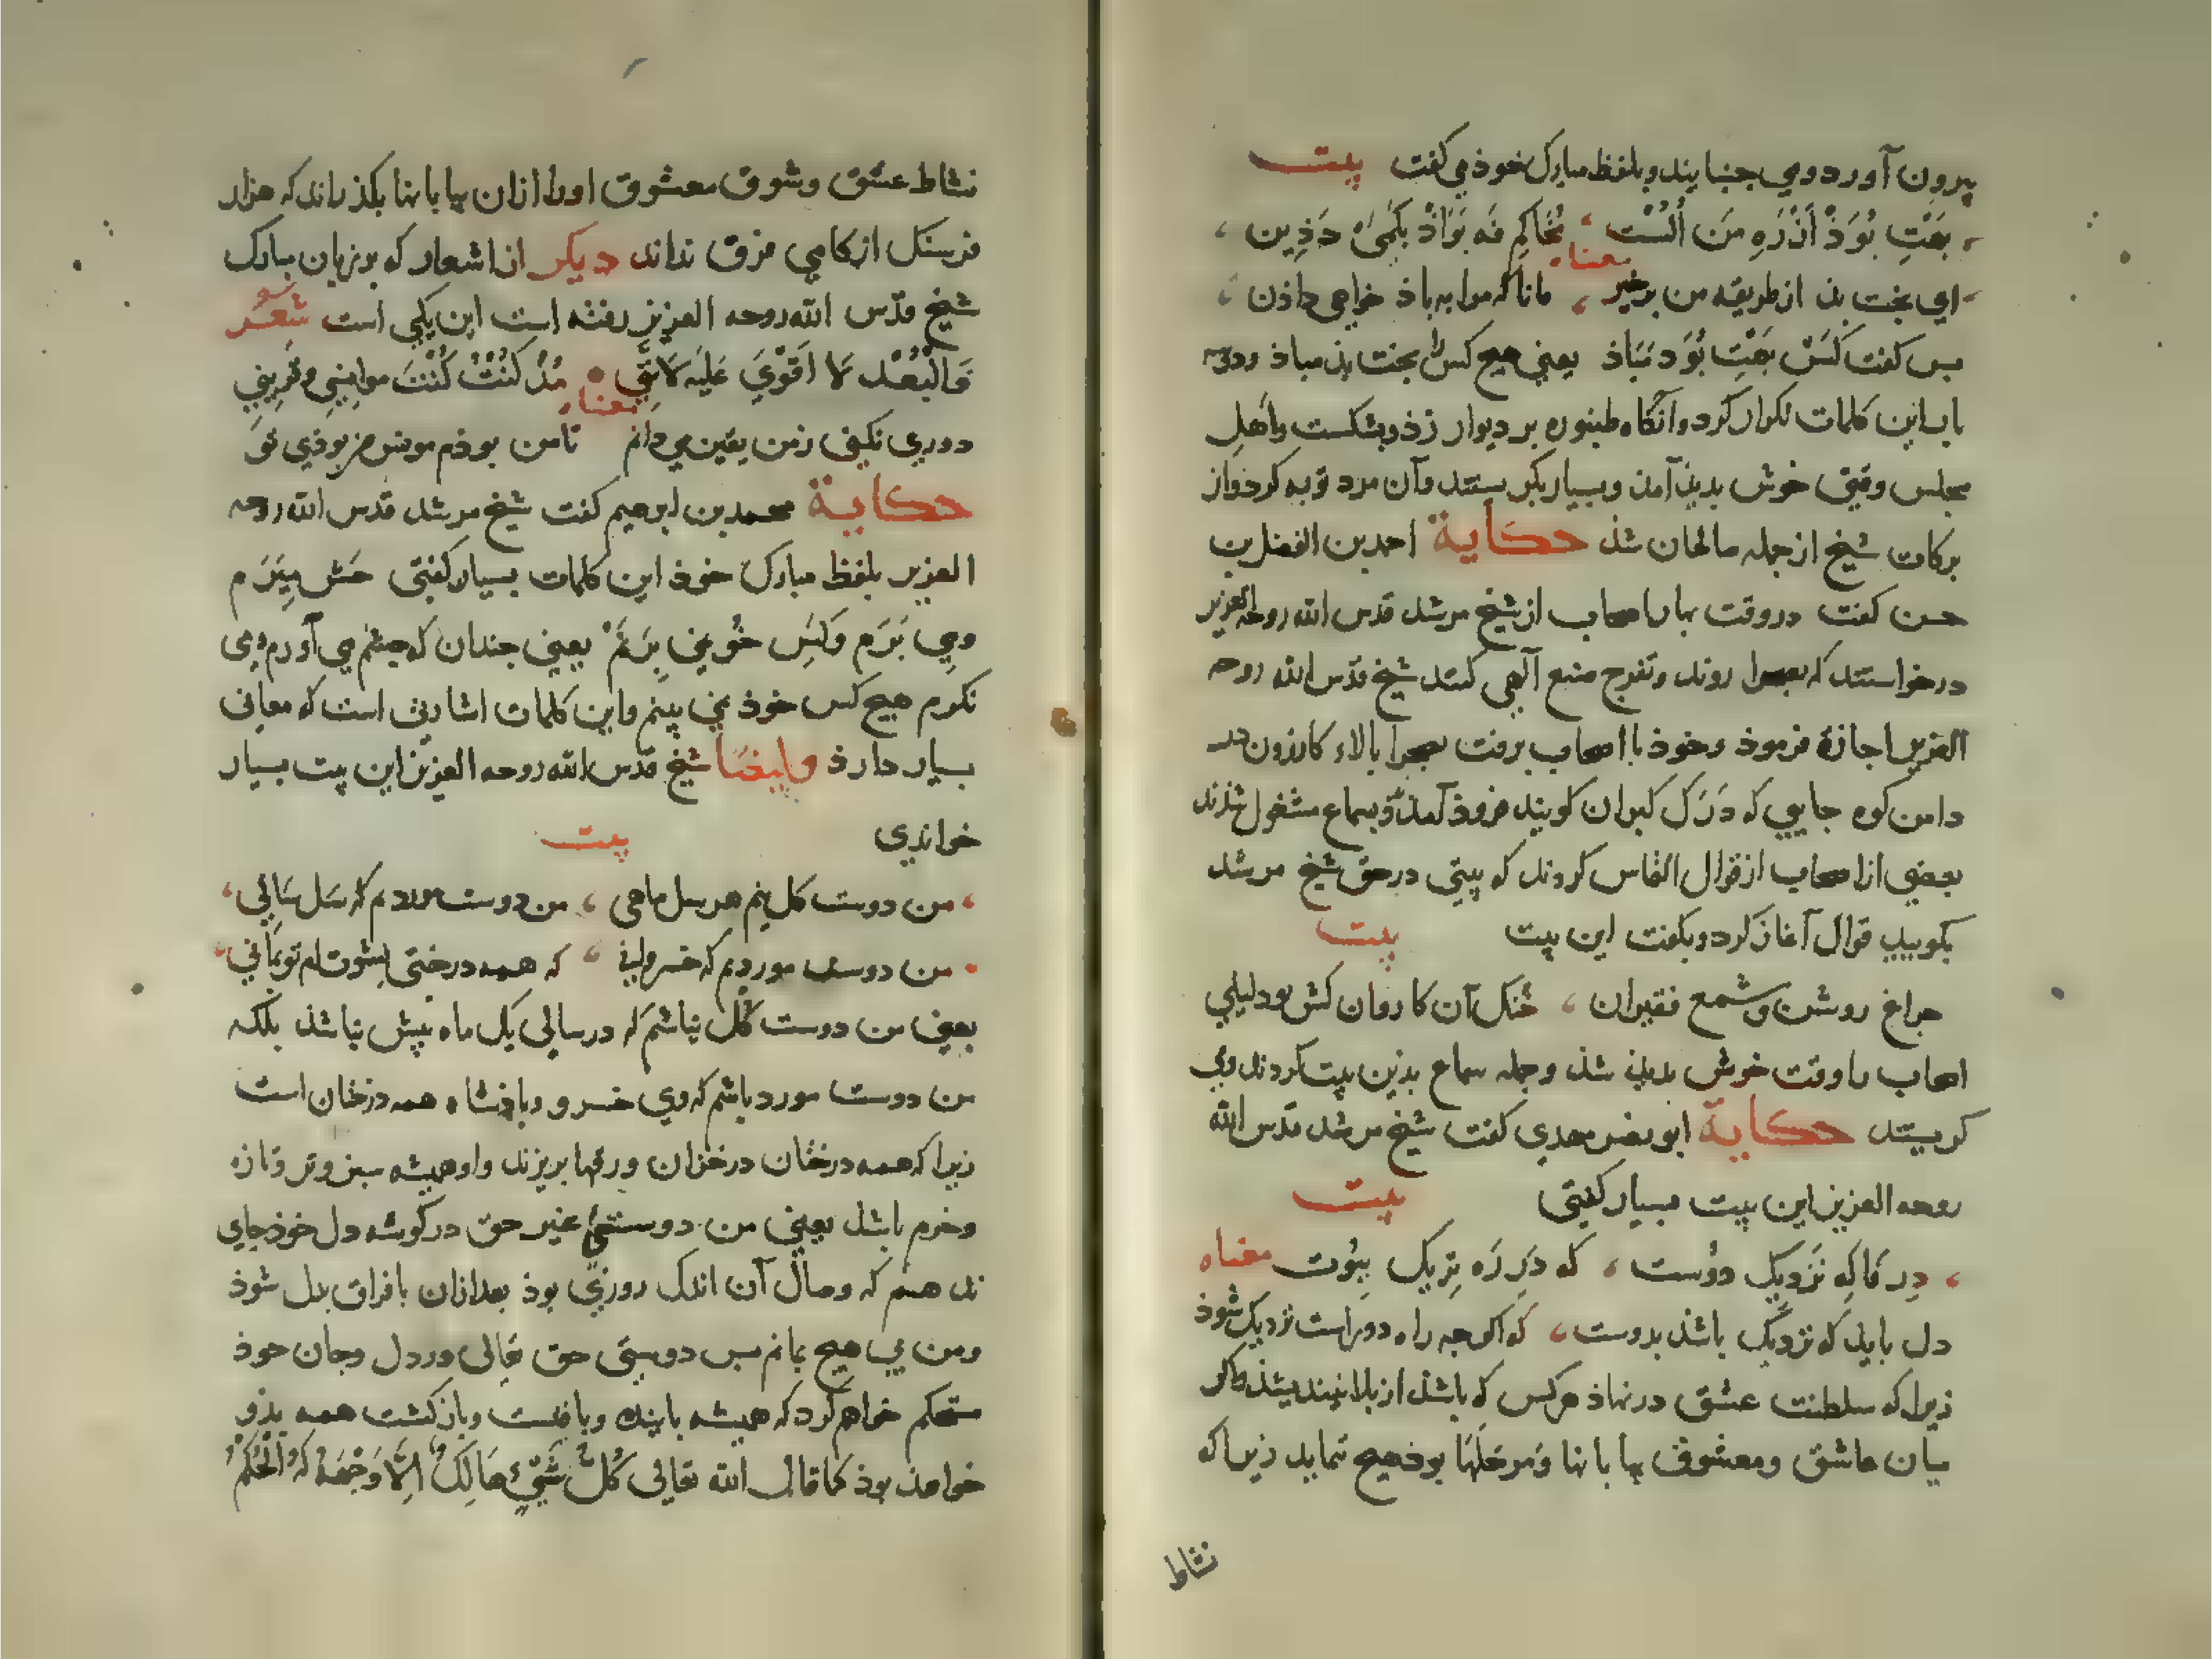 بیرون آورد و می جنبانید و بلفظ مبارک خوذ می کفت بیت
بَختِ بُوَذ اَنْدَرِه مَن اُلسْت نُخاکِم فَه بَوَاذْ بِکمی دَذِین
معناه
ای بخت بذ از طریقه من برخیز مانا که مرا به باذ خواهی داذن
بس کفت کَسَشْ بَخْتِ بُوَد مَبَاذ یعنی هیچ کس را بخت بذ مباذ و دو سه
بار این کلمات تکرار کرد و آنکاه طنبوره بر دیوار زذ و بشکست و اهل
مجلس وقتی خوش بدیذ آمد و بسیار بکریستند و آن مرد توبه کرد و از
برکات شیخ از جمله صالحان شذ حکایة احمد بن الفضل بن
حسن کفت در وقت بهار اصحاب از شیخ مرشد قدس الله روحه العزیز
درخواستند که بصحرا روند و تفرج صنع آلهی کنند شیخ قدس الله روحه
العزیز اجازة فرموذ و خوذ با اصحاب برفت بصحرا بالاء کازرون در
دامن کوه جایی که دَرَک کبران کویند فروذ آمذ و بسماع مشغول شذند
بعضی از اصحاب از قوال التماس کردند که بیتی در حق شیخ مرشد
بکویید قوال آغاز کرد و بکفت این بیت بیت
جراغ روشن و شمع فقیران خنک آن کاروان کش بود لیلی
اصحاب را وقت خوش بدیذ شذ و جمله سماع بذین بیت کردند و می
کریستند حکایة ابو نصر مهدی کفت شیخ مرشد قدس الله
روحه العزیز این بیت بسیار کفتی بیت
دِر فاکِه نَزدِیک دوُست که دَرِ رَه نِزیک بِبُوت معناه
دل باید که نزدیک باشذ بدوست که اکر جه راه دور است نزدیک شوذ
زیرا که سلطنت عشق در نهاذ هر کس که باشذ از بلا نیندیشذ و اکر
میان عاشق و معشوق بیابانها و مرحلَهَا بوذ هیچ ننماید زیرا که
نشاط
نشاط عشق و شوق معشوق او را از ان بیابانها بکذراند که هزار
فرسنک از کامی فرق نداند دیکر از اشعار که بر زبان مبارک
شیخ قدّس الله روحه العزیز رفته است این یکی است شعر
وَالْبُعْد لَا اَقْوَی عَلَیه لَاتنی مُذْ کُنْتُ کُنْتَ موانِسِی وقَرِینِی
معناه
دوری نکنی زمن یقین می دانم تا من بوذم مونس من بوذی تو
حکایة محمد بن ابرهیم کفت شیخ مرشد قدس الله روحه
العزیز بلفظ مبارک خوذ این کلمات بسیار کفتی
یعنی جندان که جشم می آورم و می
نکرم هیچ کس خوذ نمی بینم و این کلمات اشارتی است که معانی
بسیار دارذ و ایضا شیخ قدس الله روحه العزیز این بیت بسیار
خواندی بیت
من دوست کل نیم هر سل ماهی من دوست موردم که سَل سَالی
من دوست موردم که خسروانی که همه درختی
یعنی من دوست کُل نباشم که در سالی یک ماه بیش نباشذ بلکه
من دوست مورد باشم که وی خسرو و باذشاه همه درختان است
زیرا که همه درختان در خزان ورقها بریزند و او همیشه سبز و تر و تازه
و خرم باشد یعنی من دوستی غیر حق در کوشه دل خوذ جای
ندهم که وصال آن اندک روزی بوذ بعد از ان با فراق بدل شوذ
و من بی هیچ بمانم بس دوستی حق تعالی در دل و جان خوذ
مستحکم خواهم کرد که همیشه باینده و باقیست و بازکشت همه بذو
خواهذ بوذ کما قال الله تعالی کُلُّ شَیْءٍ هَالِکٌ اِلَّا وَجْهَهُ لَهُ الْحُکْمُ